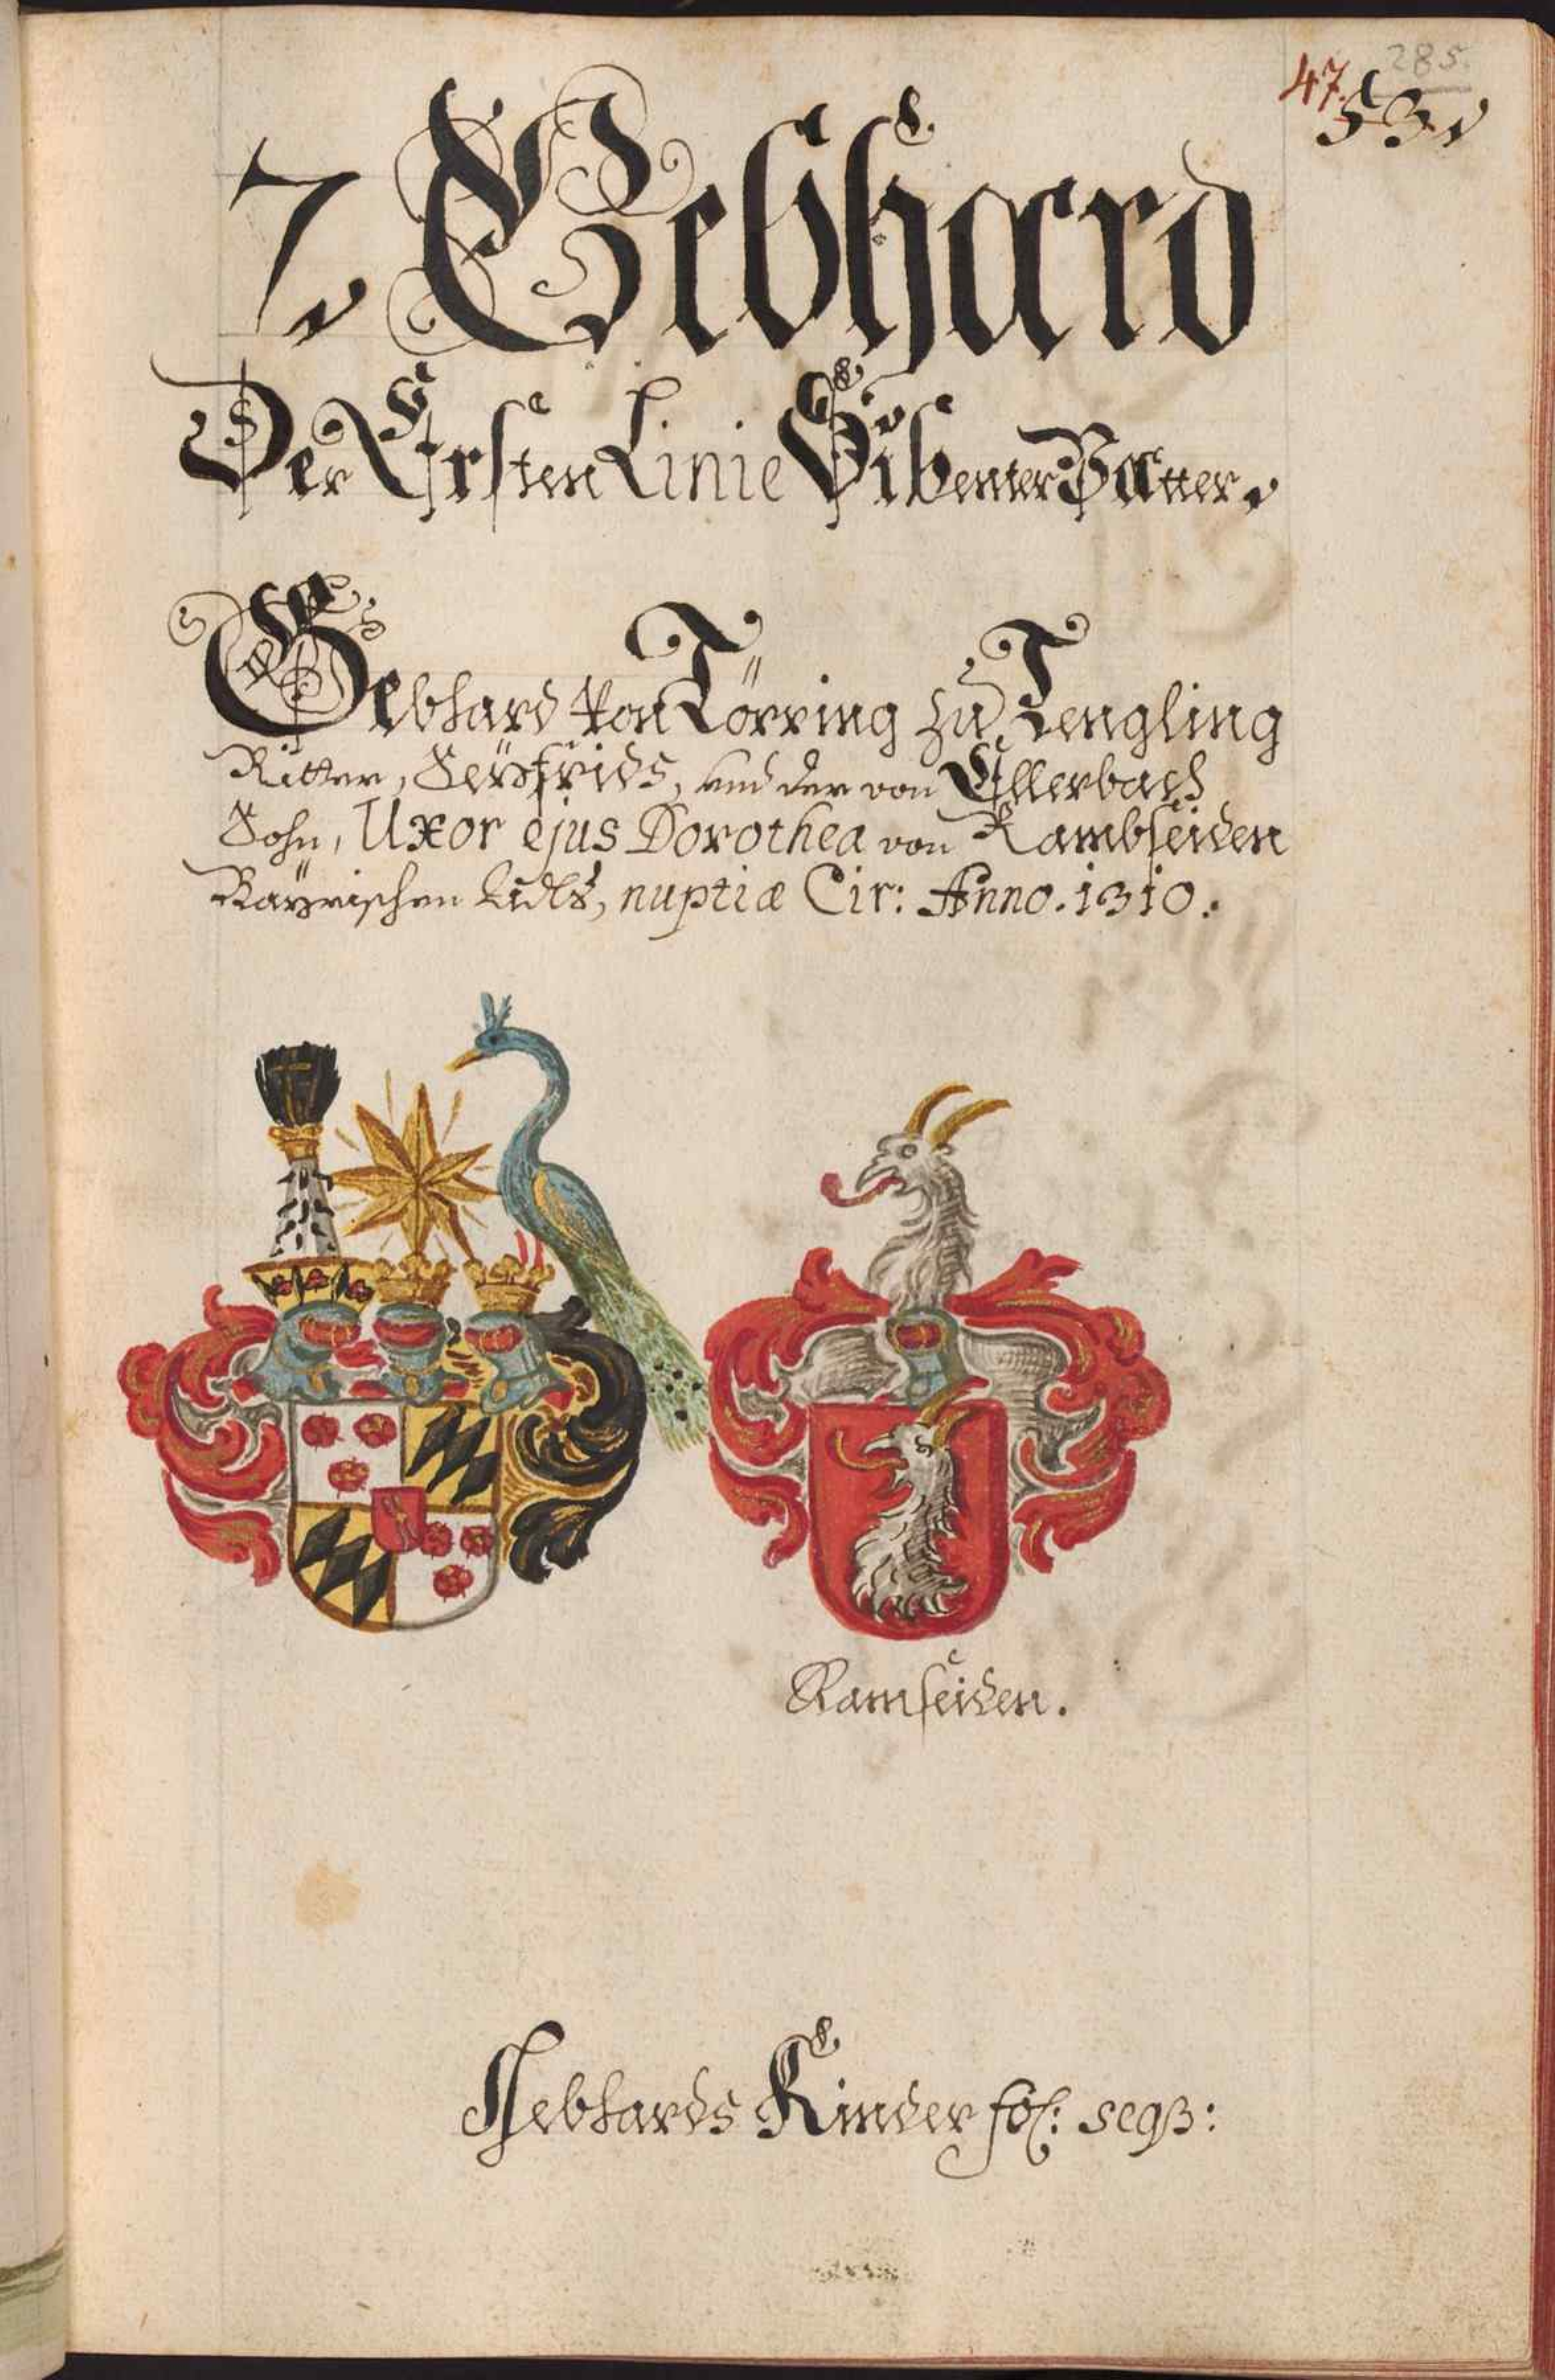 285.
47. 53.
7. Gebhard
Der Ersten Linie Sibenter Vatter.
Gebhard von Törring zu Tengling
Ritter, Seyfrids, und der von Ellerbach
Sohn, Uxor ejus Dorothea von Rambseiden
Bayrischen Adls, nuptiæ Cir: Anno. 1310.
Ramseiden.
Gebhards Kinder fol: seqß: